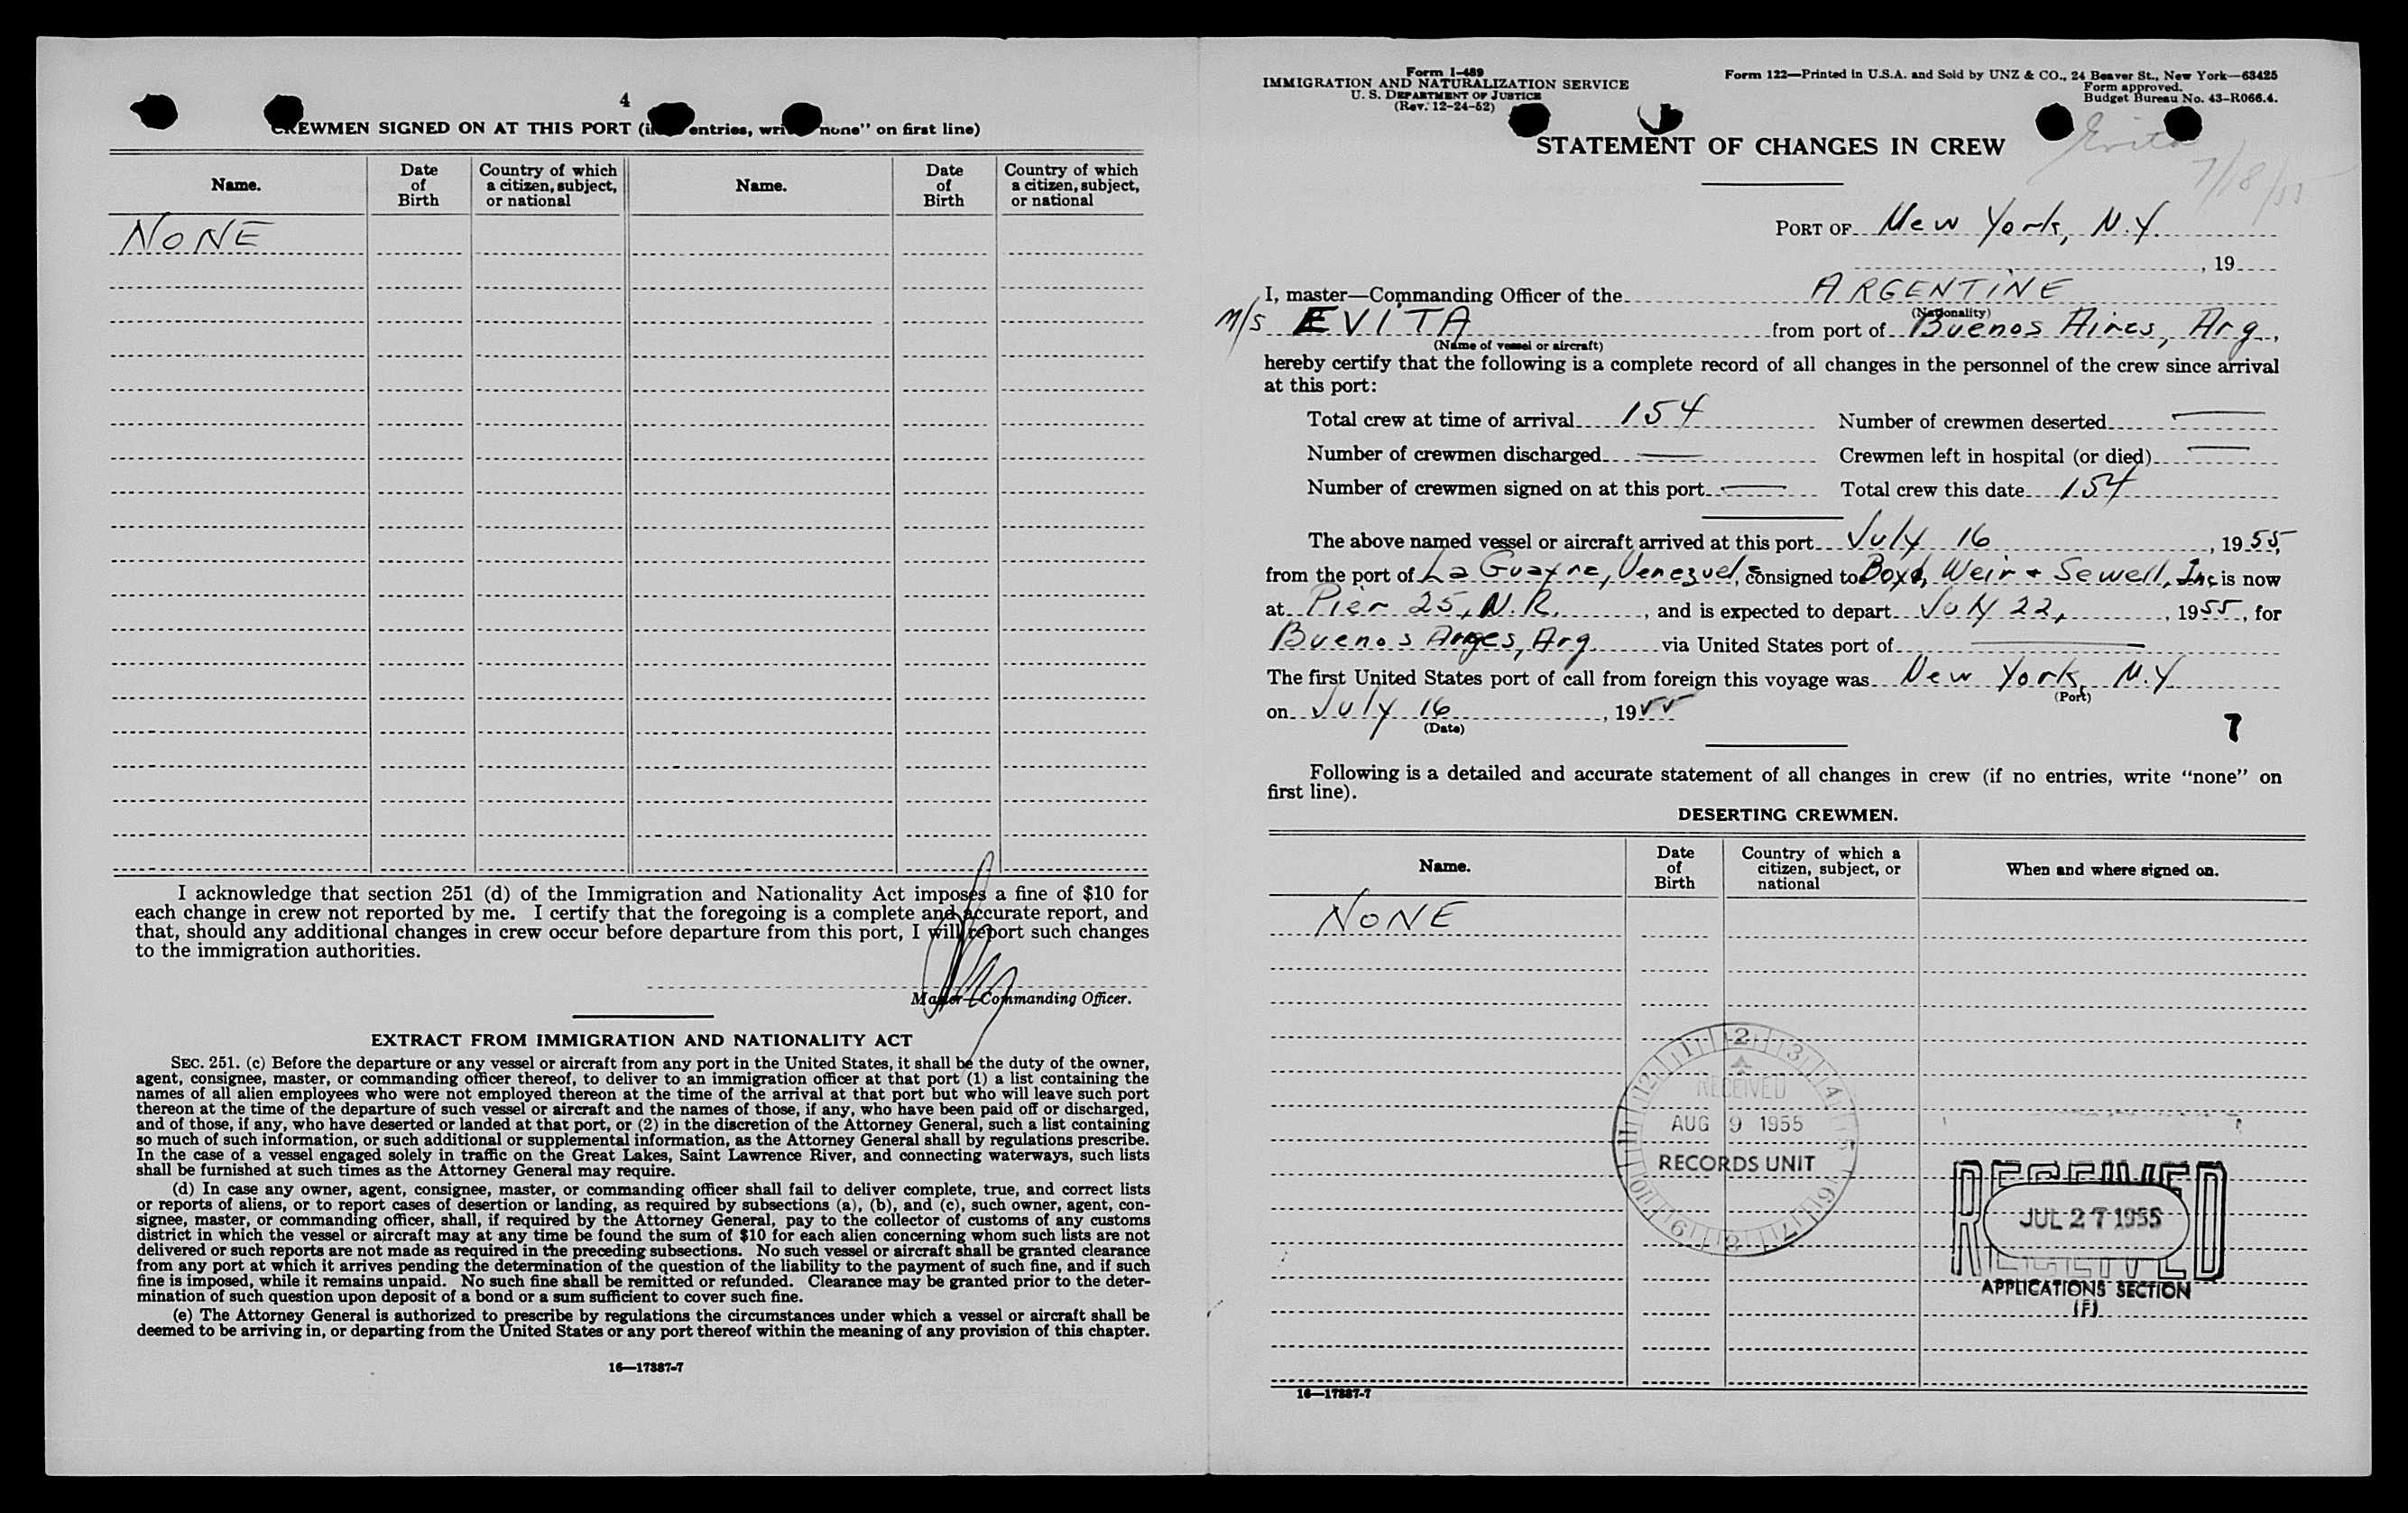 4
CREWMEN SIGNED ON AT THIS PORT (if entries, write none" on first line)
Name. Date of Birth Country of which a citizen, subject, or national Name. Date of Birth Country of which a citizen, subject, or national
NONE
I acknowledge that section 251 (d) of the Immigration and Nationality Act imposes a fine of $10 for
each change in crew not reported by me. I certify that the foregoing is a complete and accurate report, and
that, should any additional changes in crew occur before departure from this port, I will report such changes
to the immigration authorities.
Master—Commanding Officer.
EXTRACT FROM IMMIGRATION AND NATIONALITY ACT
SEC. 251. (c) Before the departure or any vessel or aircraft from any port in the United States, it shall be the duty of the owner,
agent, consignee, master, or commanding officer thereof, to deliver to an immigration officer at that port (1) a list containing the
names of all alien employees who were not employed thereon at the time of the arrival at that port but who will leave such port
thereon at the time of the departure of such vessel or aircraft and the names of those, if any, who have been paid off or discharged,
and of those, if any, who have deserted or landed at that port, or (2) in the discretion of the Attorney General, such a list containing
so much of such information, or such additional or supplemental information, as the Attorney General shall by regulations prescribe.
In the case of a vessel engaged solely in traffic on the Great Lakes, Saint Lawrence River, and connecting waterways, such lists
shall be furnished at such times as the Attorney General may require.
(d) In case any owner, agent, consignee, master, or commanding officer shall fail to deliver complete, true, and correct lists
or reports of aliens, or to report cases of desertion or landing, as required by subsections (a), (b), and (c), such owner, agent, con-
signee, master, or commanding officer, shall, if required by the Attorney General, pay to the collector of customs of any customs
district in which the vessel or aircraft may at any time be found the sum of $10 for each alien concerning whom such lists are not
delivered or such reports are not made as required in the preceding subsections. No such vessel or aircraft shall be granted clearance
from any port at which it arrives pending the determination of the question of the liability to the payment of such fine, and if such
fine is imposed, while it remains unpaid. No such fine shall be remitted or refunded. Clearance may be granted prior to the deter-
mination of such question upon deposit of a bond or a sum sufficient to cover such fine.
(e) The Attorney General is authorized to prescribe by regulations the circumstances under which a vessel or aircraft shall be
deemed to be arriving in, or departing from the United States or any port thereof within the meaning of any provision of this chapter.
16—17887-7
Form I-489
IMMIGRATION AND NATURALIZATION SERVICE
U. S. DEPARTMENT OF JUSTICE
(Rev. 12-24-52)
Form 122—Printed in U.S.A. and Sold by UNZ & CO., 24 Beaver St., New York—63425
Form approved.
Budget Bureau No. 43-R066.4.
Evita
7/18/55
STATEMENT OF CHANGES IN CREW
PORT OF New York, N.Y.
, 19
I, master—Commanding Officer of the ARGENTINE
(Nationality)
M/S EVITA from port of Buenos Aires, Arg.,
(Name of vessel or aircraft)
hereby certify that the following is a complete record of all changes in the personnel of the crew since arrival
at this port:
Total crew at time of arrival 154 Number of crewmen deserted —
Number of crewmen discharged — Crewmen left in hospital (or died) —
Number of crewmen signed on at this port — Total crew this date 154
The above named vessel or aircraft arrived at this port July 16, 1955,
from the port of La Guayra, Venezuel, consigned to Boyd, Weir & Sewell, Inc is now
at Pier 25, N.R., and is expected to depart July 22,, 1955, for
Buenos Aires, Arg via United States port of —
The first United States port of call from foreign this voyage was New York, N.Y
(Port)
on July 16, 1955
(Date)
7
Following is a detailed and accurate statement of all changes in crew (if no entries, write "none" on
first line).
DESERTING CREWMEN.
Name. Date of Birth Country of which a citizen, subject, or national When and where signed on.
NONE
12 1 2 3 4 5 6 7 8 9 10 11
RECEIVED
AUG 9 1955
RECORDS UNIT
RECEIVED
JUL 27 1955
RECEIVED
APPLICATIONS SECTION
(F)
16—17887-7